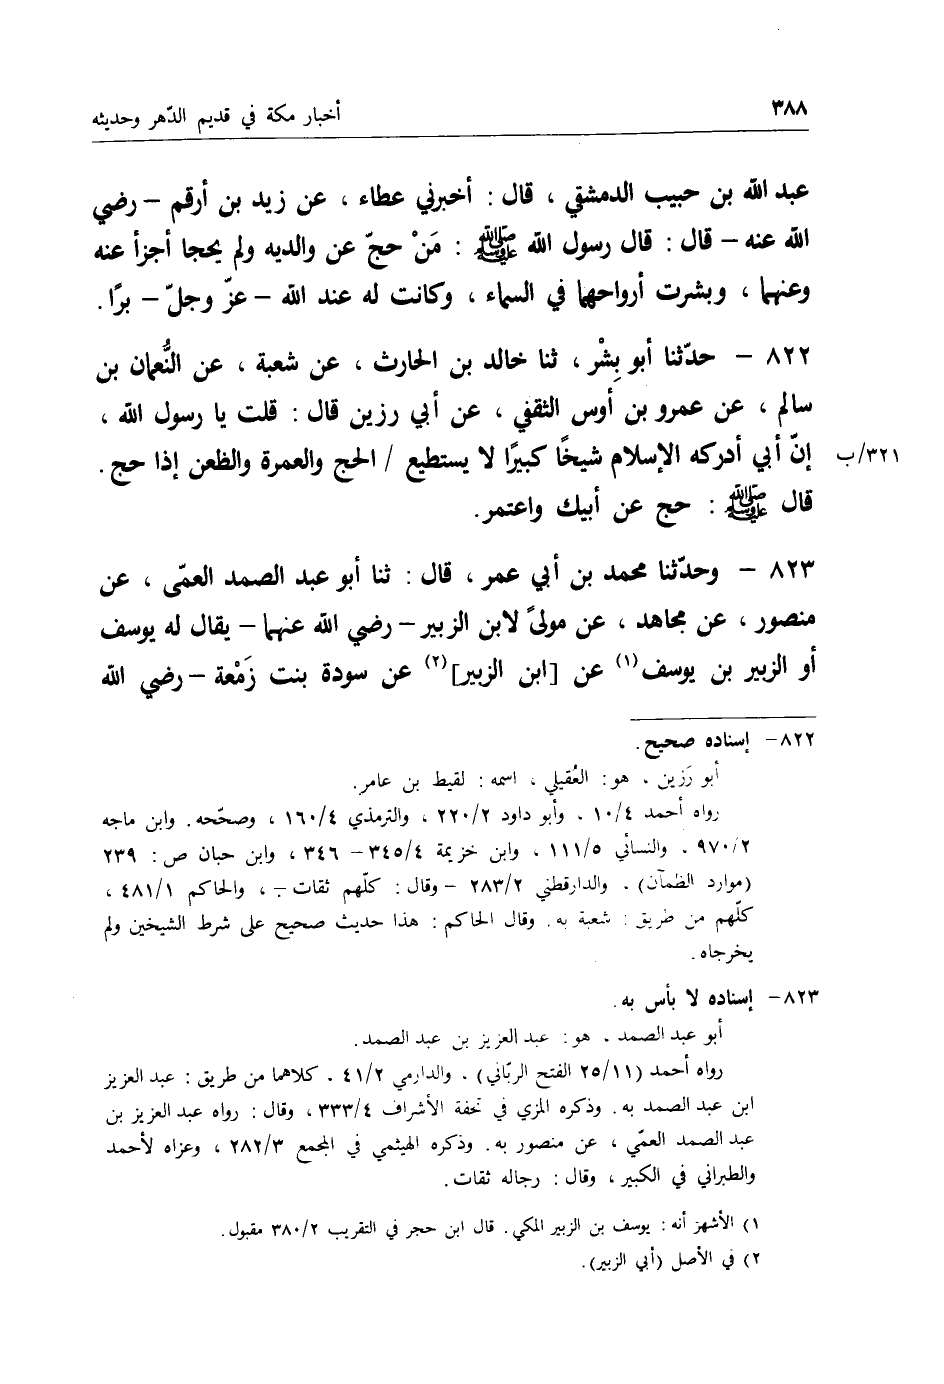 ٣٨٨ أخبار مكة في قديم الدّهر وحديثه
عبد الله بن حبيب الدمشقي ، قال : أخبرني عطاء ، عن زيد بن أرقم – رضي
الله عنه – قال : قال رسول الله ﷺ : مَنْ حجّ عن والديه ولم يحجا أجزأ عنه
وعنهما ، وبشرت أرواحهما في السماء ، وكانت له عند الله – عزّ وجلّ – برًا .
٨٢٢ – حدّثنا أبو بِشْر ، ثنا خالد بن الحارث ، عن شعبة ، عن النُّعمان بن
سالم ، عن عمرو بن أوس الثقفي ، عن أبي رزين قال : قلت يا رسول الله ،
إنّ أبي أدركه الإسلام شيخًا كبيرًا لا يستطيع / الحج والعمرة والظعن إذا حج . ٣٢١/ب
قال ﷺ : حج عن أبيك واعتمر .
٨٢٣ – وحدّثنا محمد بن أبي عمر ، قال : ثنا أبو عبد الصمد العمّى ، عن
منصور ، عن مجاهد ، عن مولىً لابن الزبير – رضي الله عنهما – يقال له يوسف
أو الزبير بن يوسف(١) عن [ابن الزبير](٢) عن سودة بنت زَمْعة – رضي الله
٨٢٢– إسناده صحيح .
أبو رَزين . هو : العُقيلي ، اسمه : لقيط بن عامر .
رواه أحمد ١٠/٤ . وأبو داود ٢٢٠/٢ ، والترمذي ١٦٠/٤ ، وصحّحه . وابن ماجه
٩٧٠/٢ . والنسائي ١١١/٥ ، وابن خزيمة ٣٤٥/٤ – ٣٤٦ ، وابن حبان ص : ٢٣٩
(موارد الظمآن) . والدارقطني ٢٨٣/٢ – وقال : كلّهم ثقات – ، والحاكم ٤٨١/١ ،
كلّهم من طريق : شعبة به . وقال الحاكم : هذا حديث صحيح على شرط الشيخين ولم
يخرجاه .
٨٢٣– إسناده لا بأس به .
أبو عبد الصمد . هو : عبد العزيز بن عبد الصمد .
رواه أحمد (٢٥/١١ الفتح الربّاني) . والدارمي ٤١/٢ . كلاهما من طريق : عبد العزيز
ابن عبد الصمد به . وذكره المزي في تحفة الأشراف ٣٣٣/٤ ، وقال : رواه عبد العزيز بن
عبد الصمد العمّي ، عن منصور به . وذكره الهيثمي في المجمع ٢٨٢/٣ ، وعزاه لأحمد
والطبراني في الكبير ، وقال : رجاله ثقات .
١) الأشهر أنه : يوسف بن الزبير المكي . قال ابن حجر في التقريب ٣٨٠/٢ مقبول .
٢) في الأصل (أبي الزبير) .